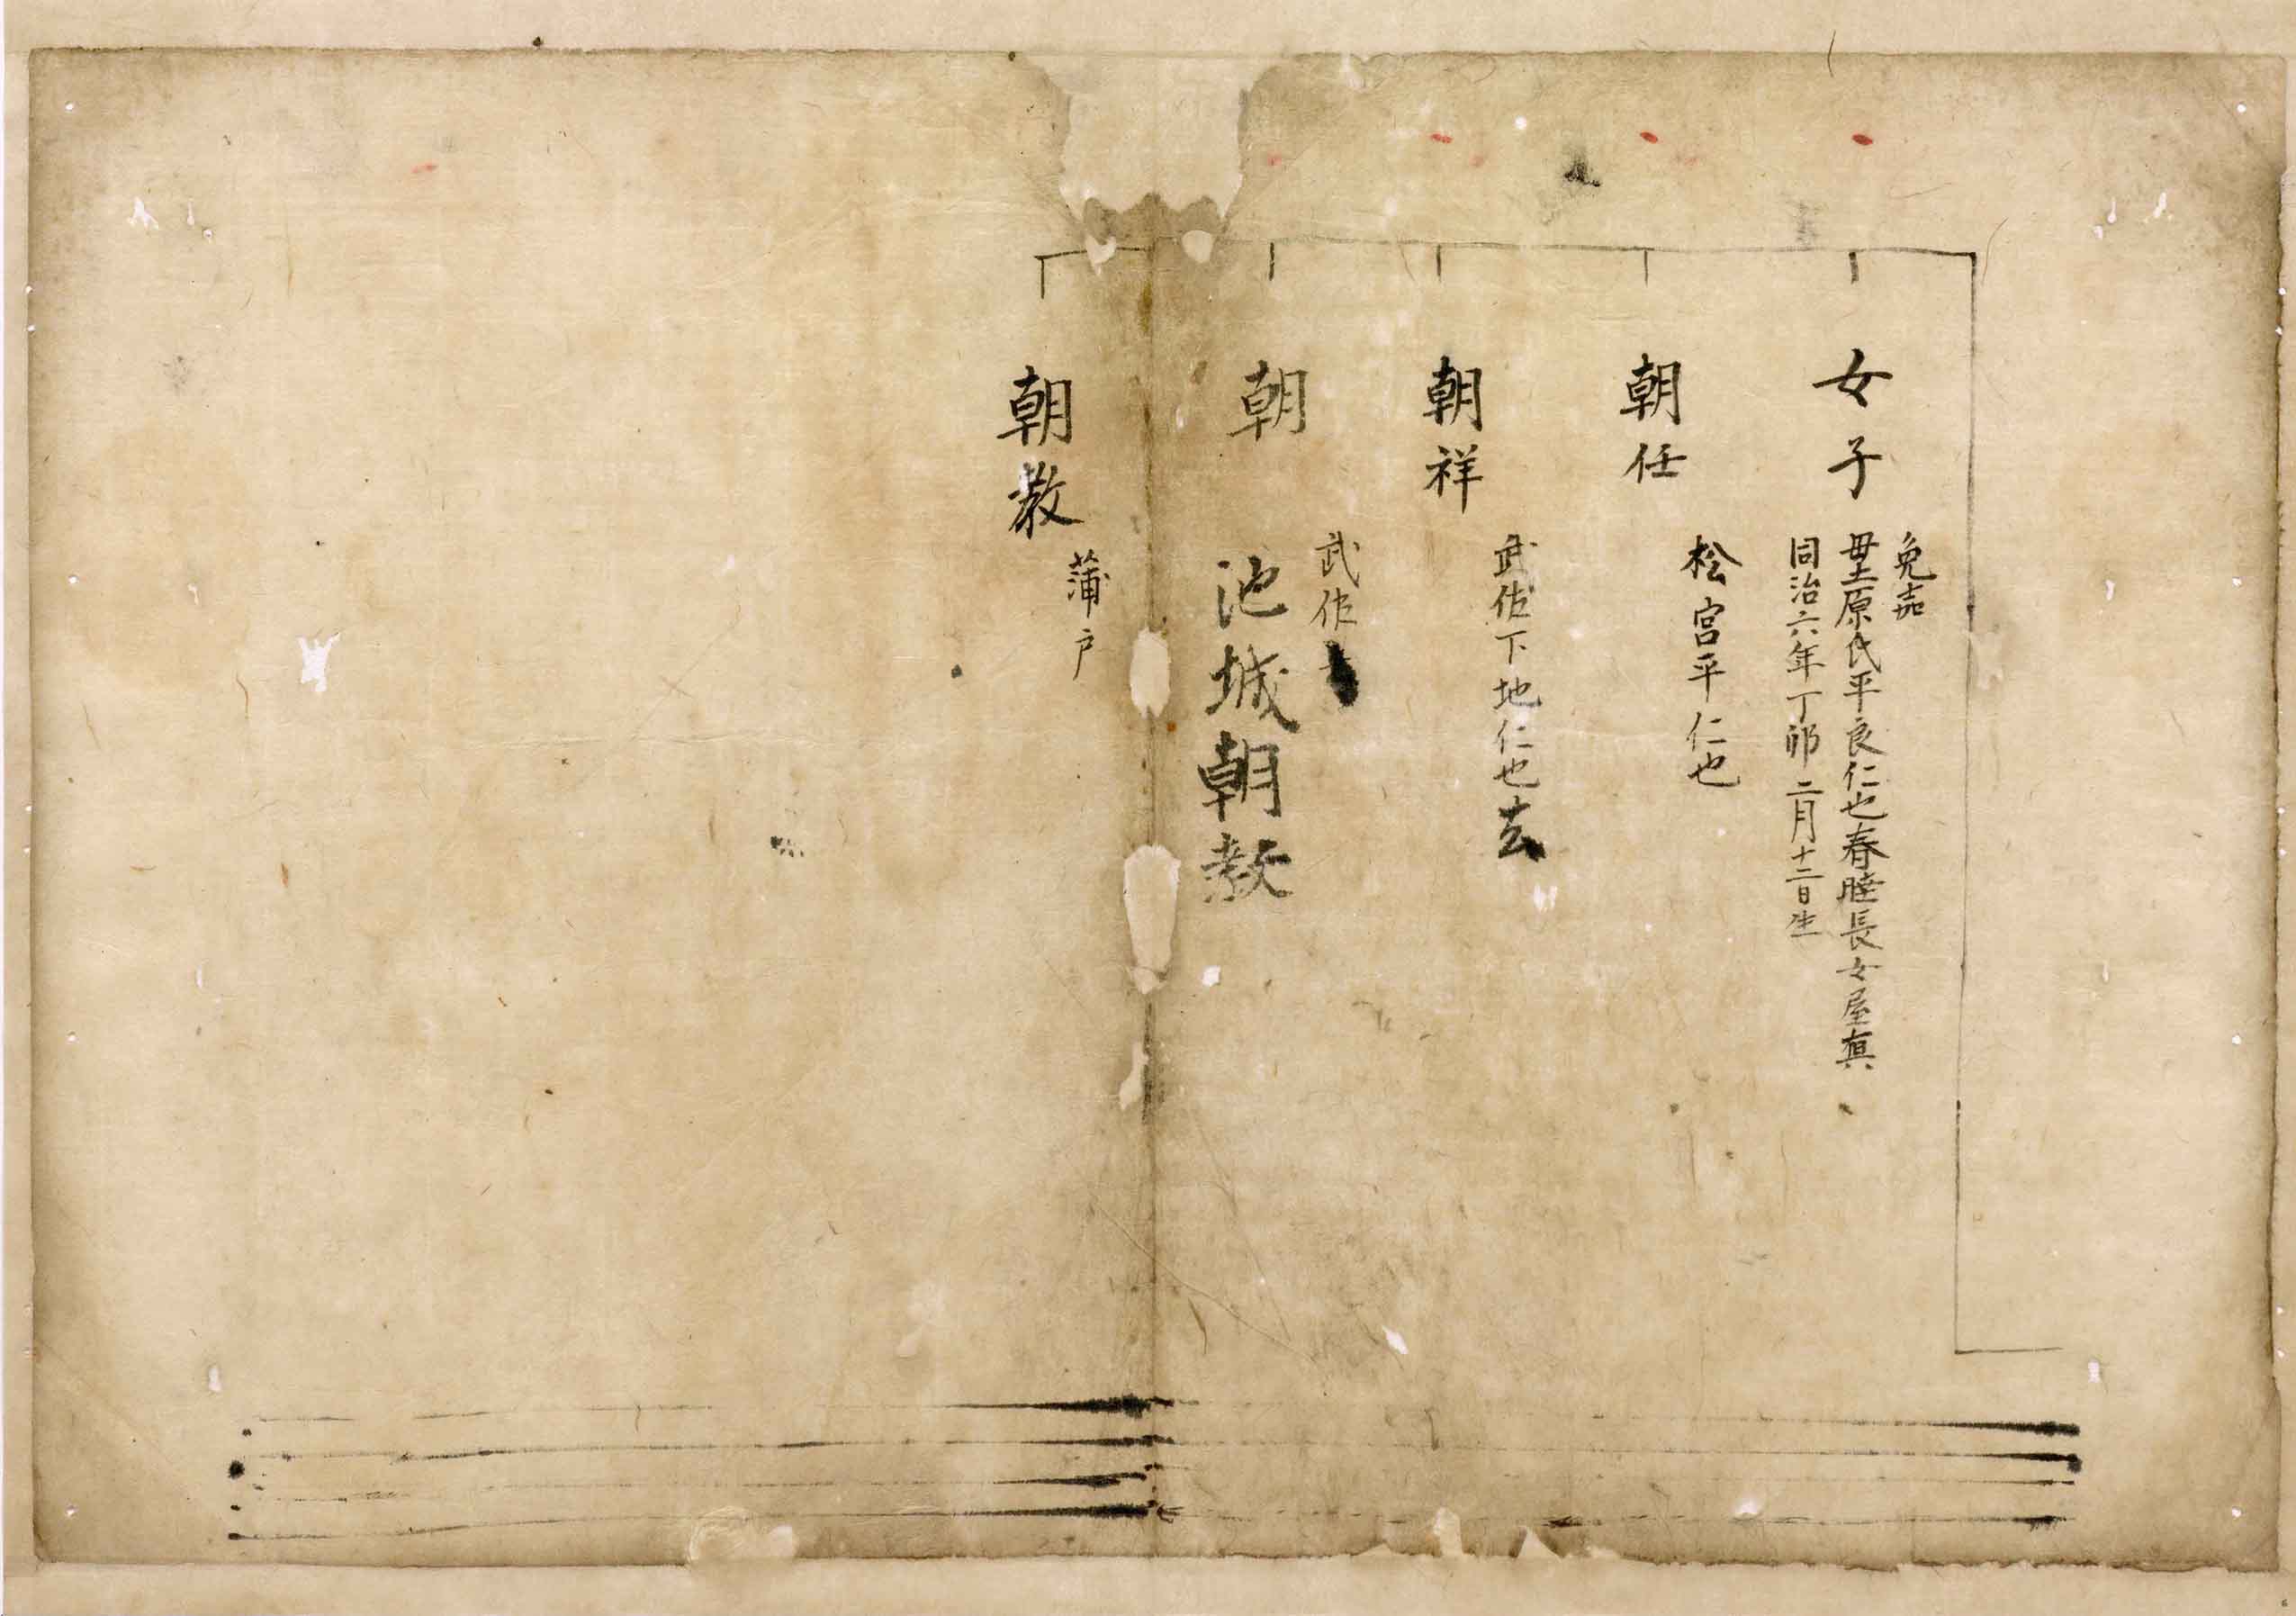 女子
免嘉
毋土原氏平良仁也春睦長女屋真
同治六年丁卯二月十二日生
朝任
松宮平仁也
朝祥
武佐下地仁也玄
朝
武佐
池城朝教
朝教
蒲戸